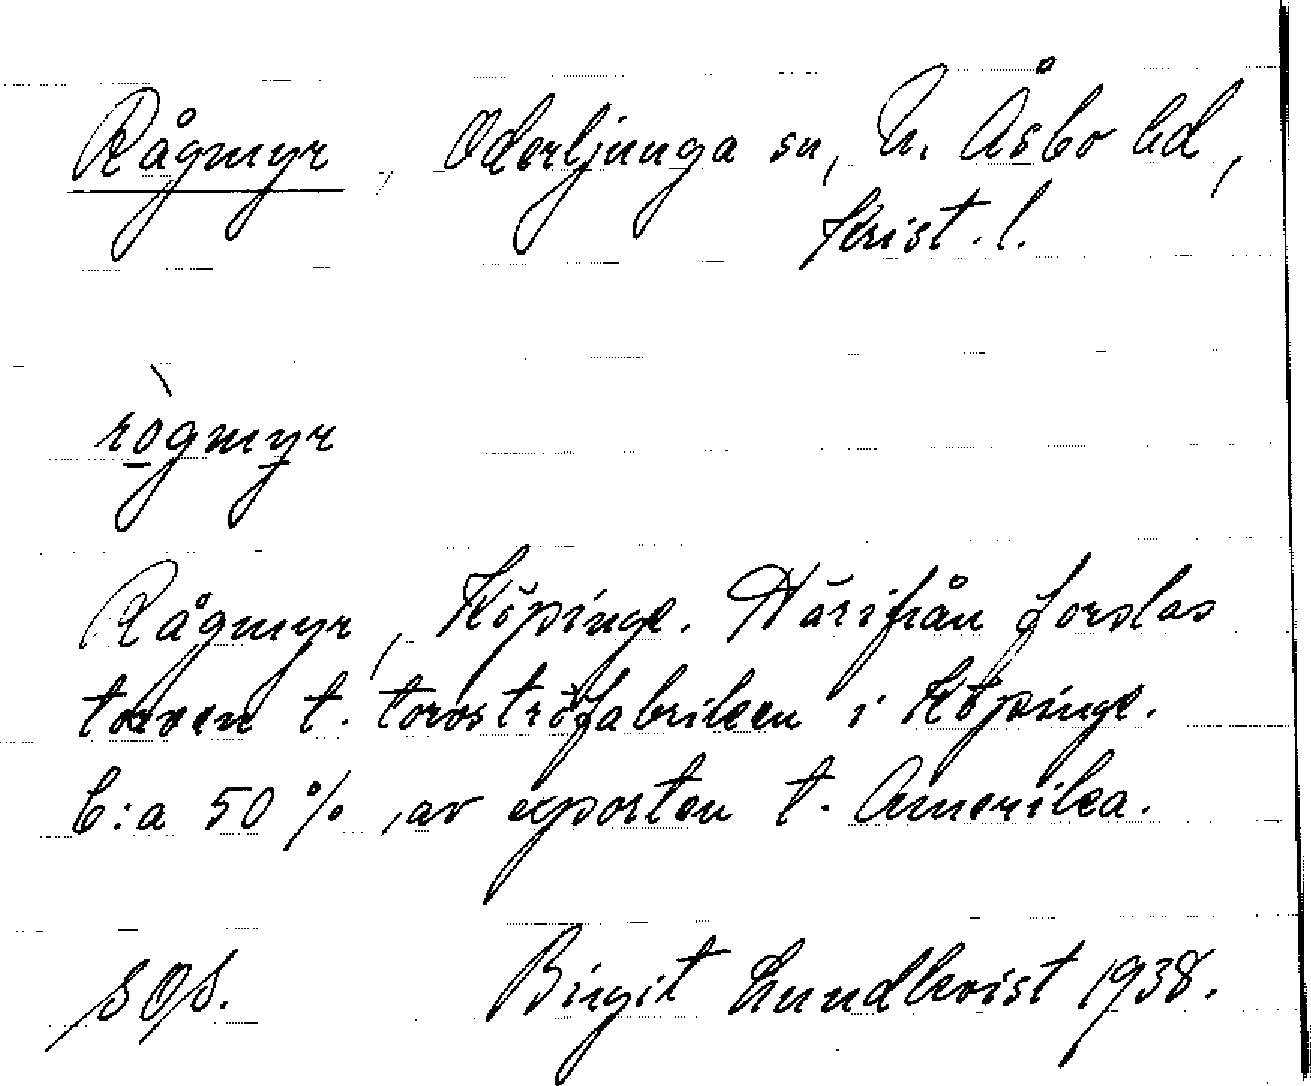 Rågmyr, Oderljunga sn, N. Åsbo hd,
Krist. l.
rògmyr
Rågmyr, Köpinge. Härifrån forslas
torven t. torvströfabriken i Köpinge.
C:a 50 % av exporten t. Amerika.
SOS. Birgit Lundkvist 1938.